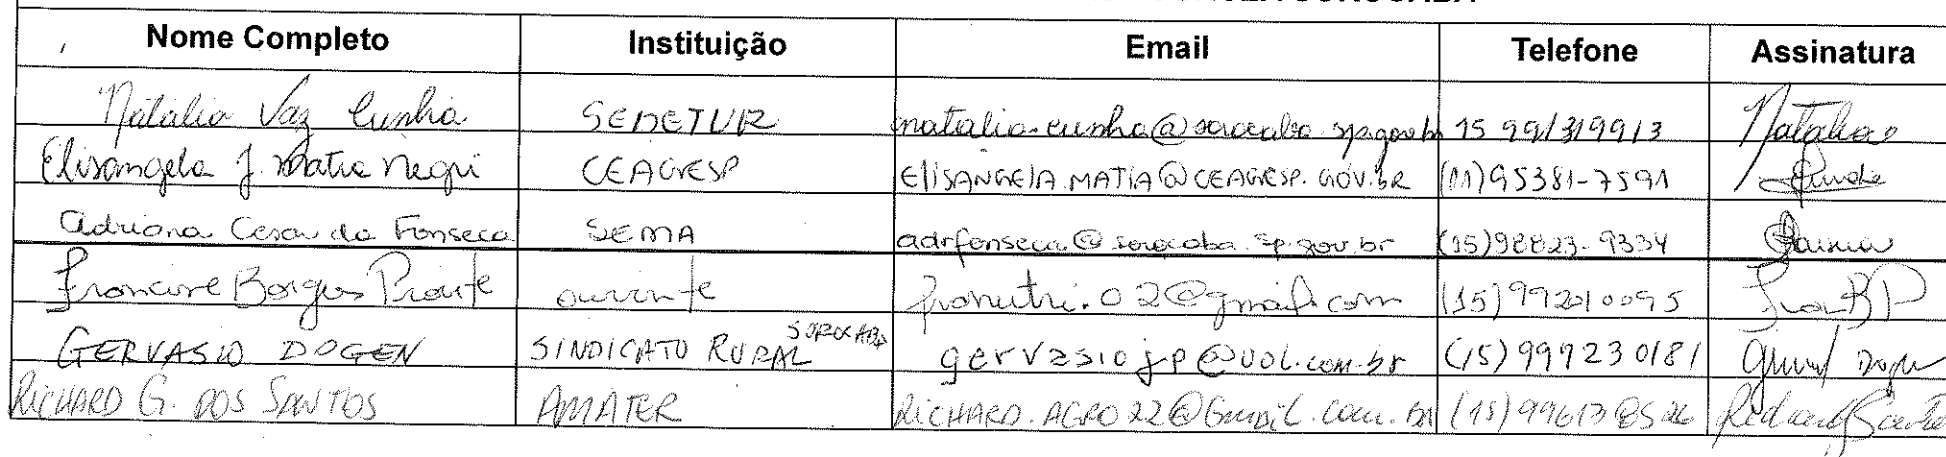 Nome Completo Instituição Email Telefone Assinatura
Natalia Vaz Cunha SEDETUR natalia.cunha@sorocaba.sp.gov.br 15 991319913 Natalia
Elisangela J. Matia Negri CEAGESP ELISANGELA.MATIA@CEAGESP.GOV.BR (11)95381-7591
Adriana Cesar da Fonseca SEMA adrfonseca@sorocaba.sp.gov.br (15)98823-9334
Francine Borges Proite ouvinte franutri.02@gmail.com (15)992010095 Fran BP
GERVASIO DOGEN SINDICATO RURAL SOROCABA gervasiojp@uol.com.br (15)999230181
RICHARD G. DOS SANTOS AMATER RICHARD.AGRO22@GMAIL.COM.BR (15)996138526 Richard Santos